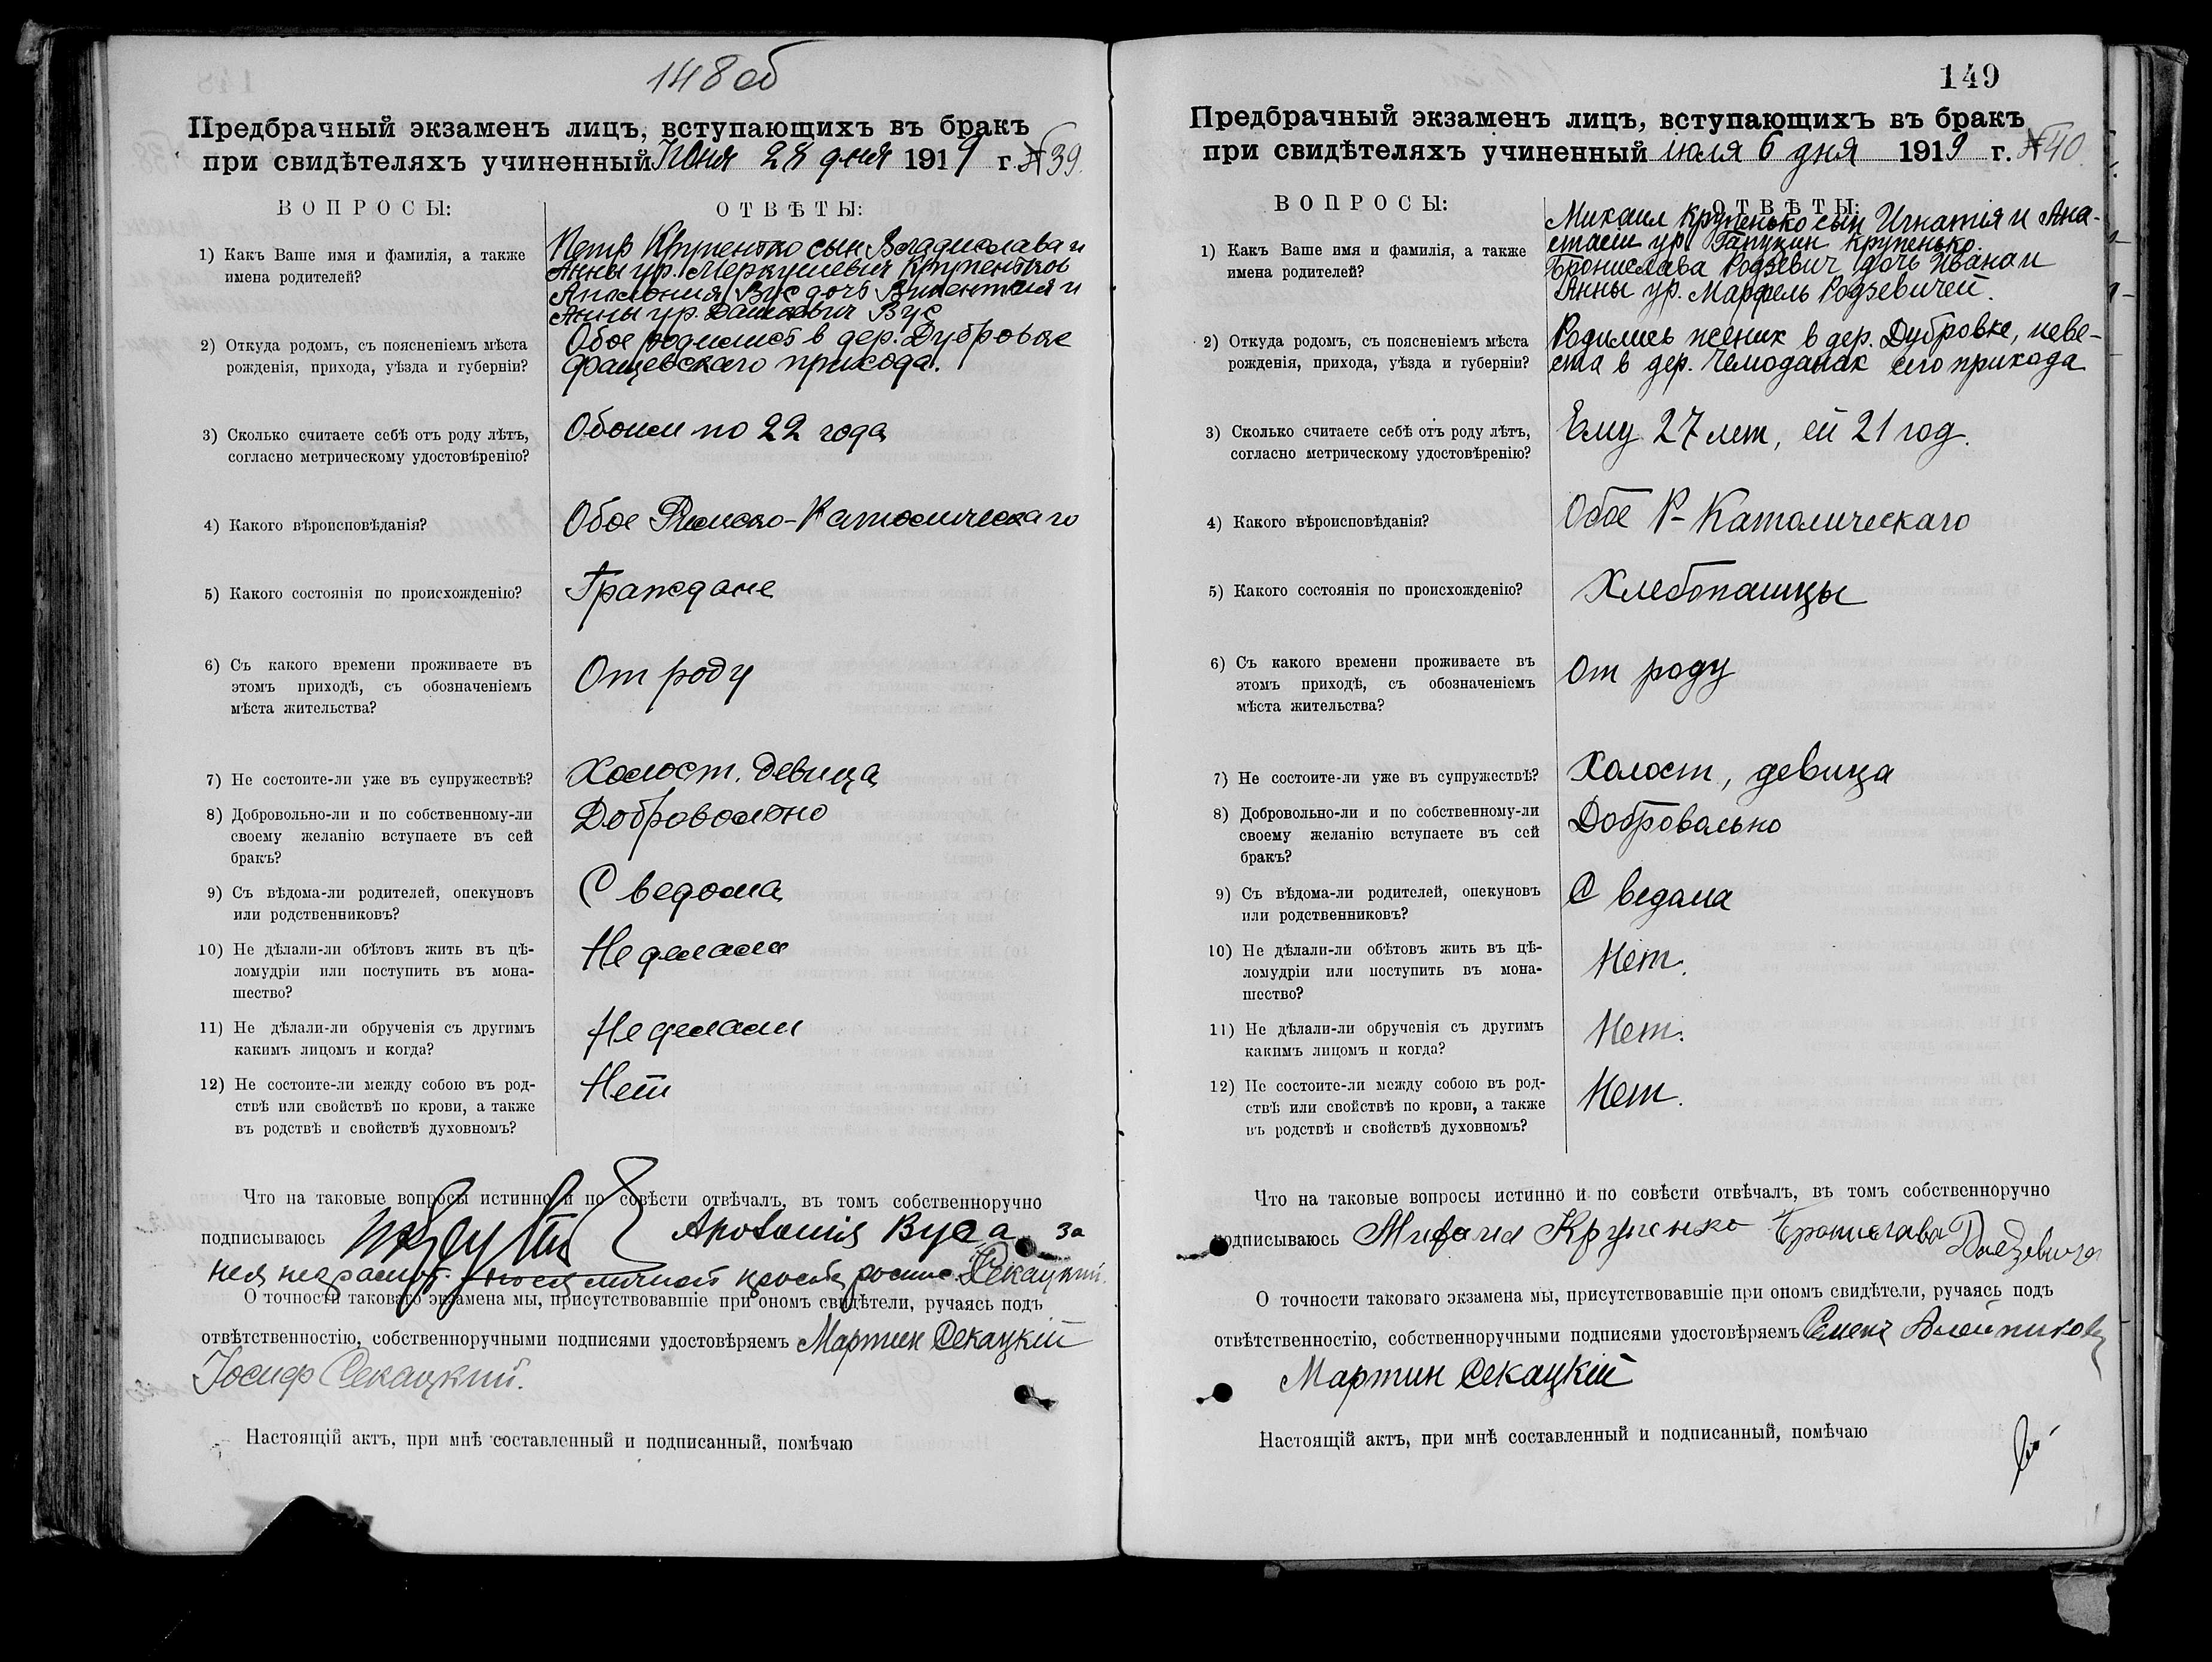 148 об
Предбрачный экзаменъ лицъ, вступающихъ въ бракъ
при свидѣтеляхъ учиненный Июня 28 дня 1919 г. № 39.
ВОПРОСЫ:
ОТВѢТЫ:
1) Какъ Ваше имя и фамилія, а также
имена родителей?
Петр Крупенько сын Владислава и
Анны ур. Меркулевич Крупеньков
Аполония Вус дочь Викентия и
Анны ур. Дашкевич Вус
2) Откуда родомъ, съ поясненіемъ мѣста
рожденія, прихода, уѣзда и губерніи?
Обое родились в дер. Дубровке
Фащевскаго прихода.
3) Сколько считаете себѣ отъ роду лѣтъ,
согласно метрическому удостовѣренію?
Обоим по 22 года
4) Какого вѣроисповѣданія?
Обое Римско-Католическаго
5) Какого состоянія по происхожденію?
Граждане
6) Съ какого времени проживаете въ
этомъ приходѣ, съ обозначеніемъ
мѣста жительства?
От роду
7) Не состоите-ли уже въ супружествѣ?
Холост. девица
8) Добровольно-ли и по собственному-ли
своему желанію вступаете въ сей
бракъ?
Добровольно
9) Съ вѣдома-ли родителей, опекуновъ
или родственниковъ?
С ведома
10) Не дѣлали-ли обѣтовъ жить въ цѣ-
ломудріи или поступить въ мона-
шество?
Не делали
11) Не дѣлали-ли обрученія съ другимъ
какимъ лицомъ и когда?
Не делали
12) Не состоите-ли между собою въ род-
ствѣ или свойствѣ по крови, а также
въ родствѣ и свойствѣ духовномъ?
Нет
Что на таковые вопросы истинно и по совѣсти отвѣчалъ, въ томъ собственноручно
подписываюсь за
нея неграмот. по ея личной просьбе роспис. Секацкий.
О точности таковаго экзамена мы, присутствовавшіе при ономъ свидѣтели, ручаясь подъ
отвѣтственностію, собственноручными подписями удостовѣряемъ Мартин Секацкій
Иосиф Секацкий.
Настоящій актъ, при мнѣ составленный и подписанный, помѣчаю
149
Предбрачный экзаменъ лицъ, вступающихъ въ бракъ
при свидѣтеляхъ учиненный июля 6 дня 1919 г. № 40.
ВОПРОСЫ:
ОТВѢТЫ:
1) Какъ Ваше имя и фамилія, а также
имена родителей?
Михаил Крупенько сын Игнатия и Ана-
стасии ур. Крупенько.
Бронислава Родзевич дочь Ивана и
Анны ур. Марфель Родзевичей.
2) Откуда родомъ, съ поясненіемъ мѣста
рожденія, прихода, уѣзда и губерніи?
Родились жених в дер. Дубровке, неве-
ста в дер. Чемоданах сего прихода
3) Сколько считаете себѣ отъ роду лѣтъ,
согласно метрическому удостовѣренію?
Ему 27 лет, ей 21 год.
4) Какого вѣроисповѣданія?
Обое Р-Католическаго
5) Какого состоянія по происхожденію?
Хлебопашцы
6) Съ какого времени проживаете въ
этомъ приходѣ, съ обозначеніемъ
мѣста жительства?
От роду
7) Не состоите-ли уже въ супружествѣ?
Холост, девица
8) Добровольно-ли и по собственному-ли
своему желанію вступаете въ сей
бракъ?
Добровольно
9) Съ вѣдома-ли родителей, опекуновъ
или родственниковъ?
С ведома
10) Не дѣлали-ли обѣтовъ жить въ цѣ-
ломудріи или поступить въ мона-
шество?
Нет.
11) Не дѣлали-ли обрученія съ другимъ
какимъ лицомъ и когда?
Нет.
12) Не состоите-ли между собою въ род-
ствѣ или свойствѣ по крови, а также
въ родствѣ и свойствѣ духовномъ?
Нет.
Что на таковые вопросы истинно и по совѣсти отвѣчалъ, въ томъ собственноручно
подписываюсь Михаил Крупенько Бронислава
О точности таковаго экзамена мы, присутствовавшіе при ономъ свидѣтели, ручаясь подъ
отвѣтственностію, собственноручными подписями удостовѣряемъ
Мартин Секацкій
Настоящій актъ, при мнѣ составленный и подписанный, помѣчаю